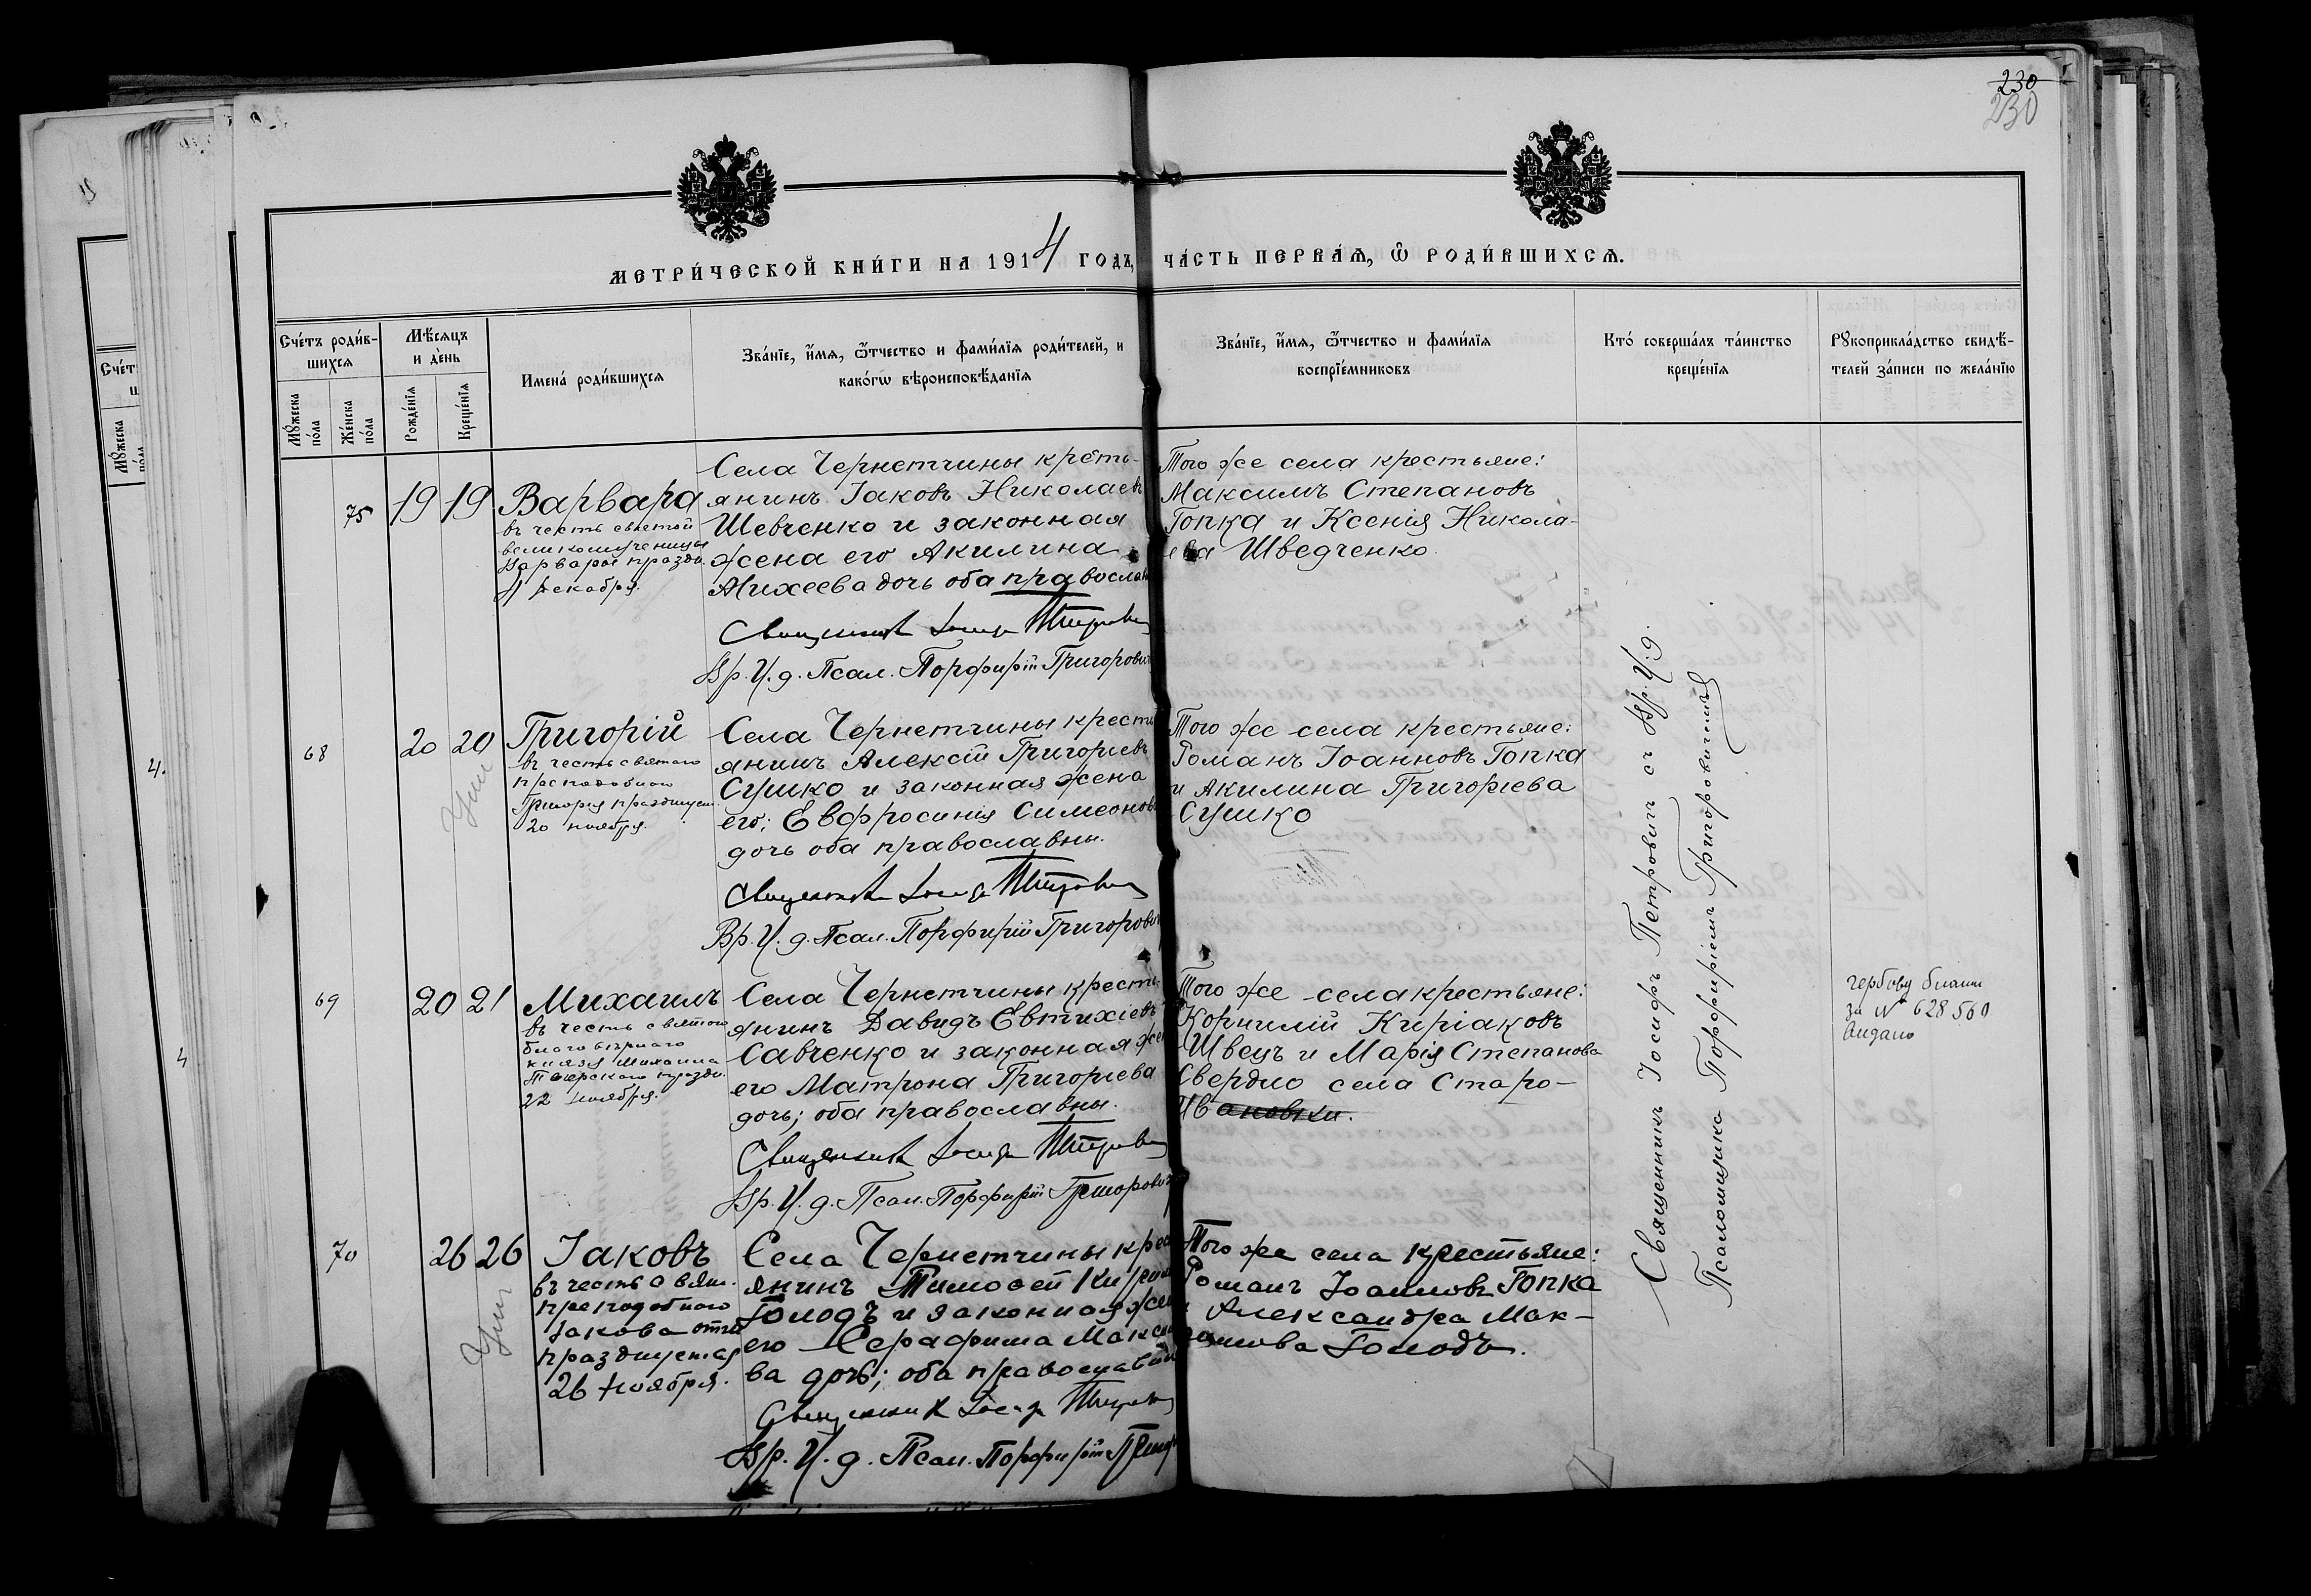 230
230
МЕТРИ́ЧЕСКОЙ КНИ́ГИ НА 1914 ГОДЪ, ЧА́СТЬ ПЕРВАѦ, Ѿ РОДИ́ВШИХСѦ.
Сче́тъ роди́в-
шихсѧ
Мꙋ́жеска
по́ла
Же́нска
по́ла
Мѣ́сѧцъ
и де́нь
Рожде́нїѧ
Креще́нїѧ
Имена́ роди́вшихсѧ
Зва́нїе, и́мѧ, ѿтчество и фами́лїѧ роди́телей, и
како́гѡ вѣроисповѣ́данїѧ
Зва́нїе, и́мѧ, ѿтчество и фами́лїѧ
воспрїе́мниковъ
Кто́ соверша́лъ та́инство
креще́нїѧ
Рꙋкоприкла́дство свидѣ́-
телей за́писи по жела́нїю
75
19 19
Варвара
въ честь святой
великомученицы
Варвары праздн.
4 декабря.
Села Чернетчины кресть-
янинъ Іаковъ Николаевъ
Шевченко и законная
жена его Акилина
Михеева дочь оба православ
Священникъ Іосифъ Петровичъ
Вр. И. д. Псал. Порфирій Григорович
Того же села крестьяне:
Максимъ Степановъ
Гопка и Ксенія Никола-
ева Шведченко.
68
20 20
Григорій
въ честь святого
преподобного
Григорія празднуем.
20 ноября.
Ум
Села Чернетчины кресть
янинъ Алексій Григорьевъ
Сушко и законная жена
его; Евфросинія Симеонов
дочь оба православны.
Священникъ Іосифъ Петровичъ
Вр. И. д. Псал. Порфирій Григорович
Того же села крестьяне:
Романъ Іоанновъ Гопка
и Акилина Григорьева
Сушко
69
20 21
Михаилъ
въ честь святого
благовѣрнаго
князя Михаила
Тверского праздн.
22 ноября.
Села Чернетчины кресть-
янинъ Давидъ Евтихіевъ
Савченко и законная жен
его Матрона Григорьева
дочь; оба православны.
Священникъ Іосифъ Петровичъ
Вр. И. д. Псал. Порфирій Григорович
Того же села крестьяне:
Корнилій Киріаковъ
Швецъ и Марія Степанова
Свердло села Старо-
Ивановки.
гербову бланк
за № 628560
видано
70
26 26
Іаковъ
въ честь свят.
преподобного
Іакова отш
празднуемая
26 ноября.
Ум
Села Чернетчины крес
янинъ Тимофей Кирил
Голодъ и законная жен
его Серафима Макси
ва дочь; оба православн
Священникъ Іосифъ Петровичъ
Вр. И. д. Псал. Порфирій Григор
Того же села крестьяне:
Романъ Іоанновъ Гопка
и Александра Мак-
симова Голодъ.
Священникъ Іосифъ Петровичъ съ Вр. И. д.
Псаломщика Порфиріемъ Григоровичемъ